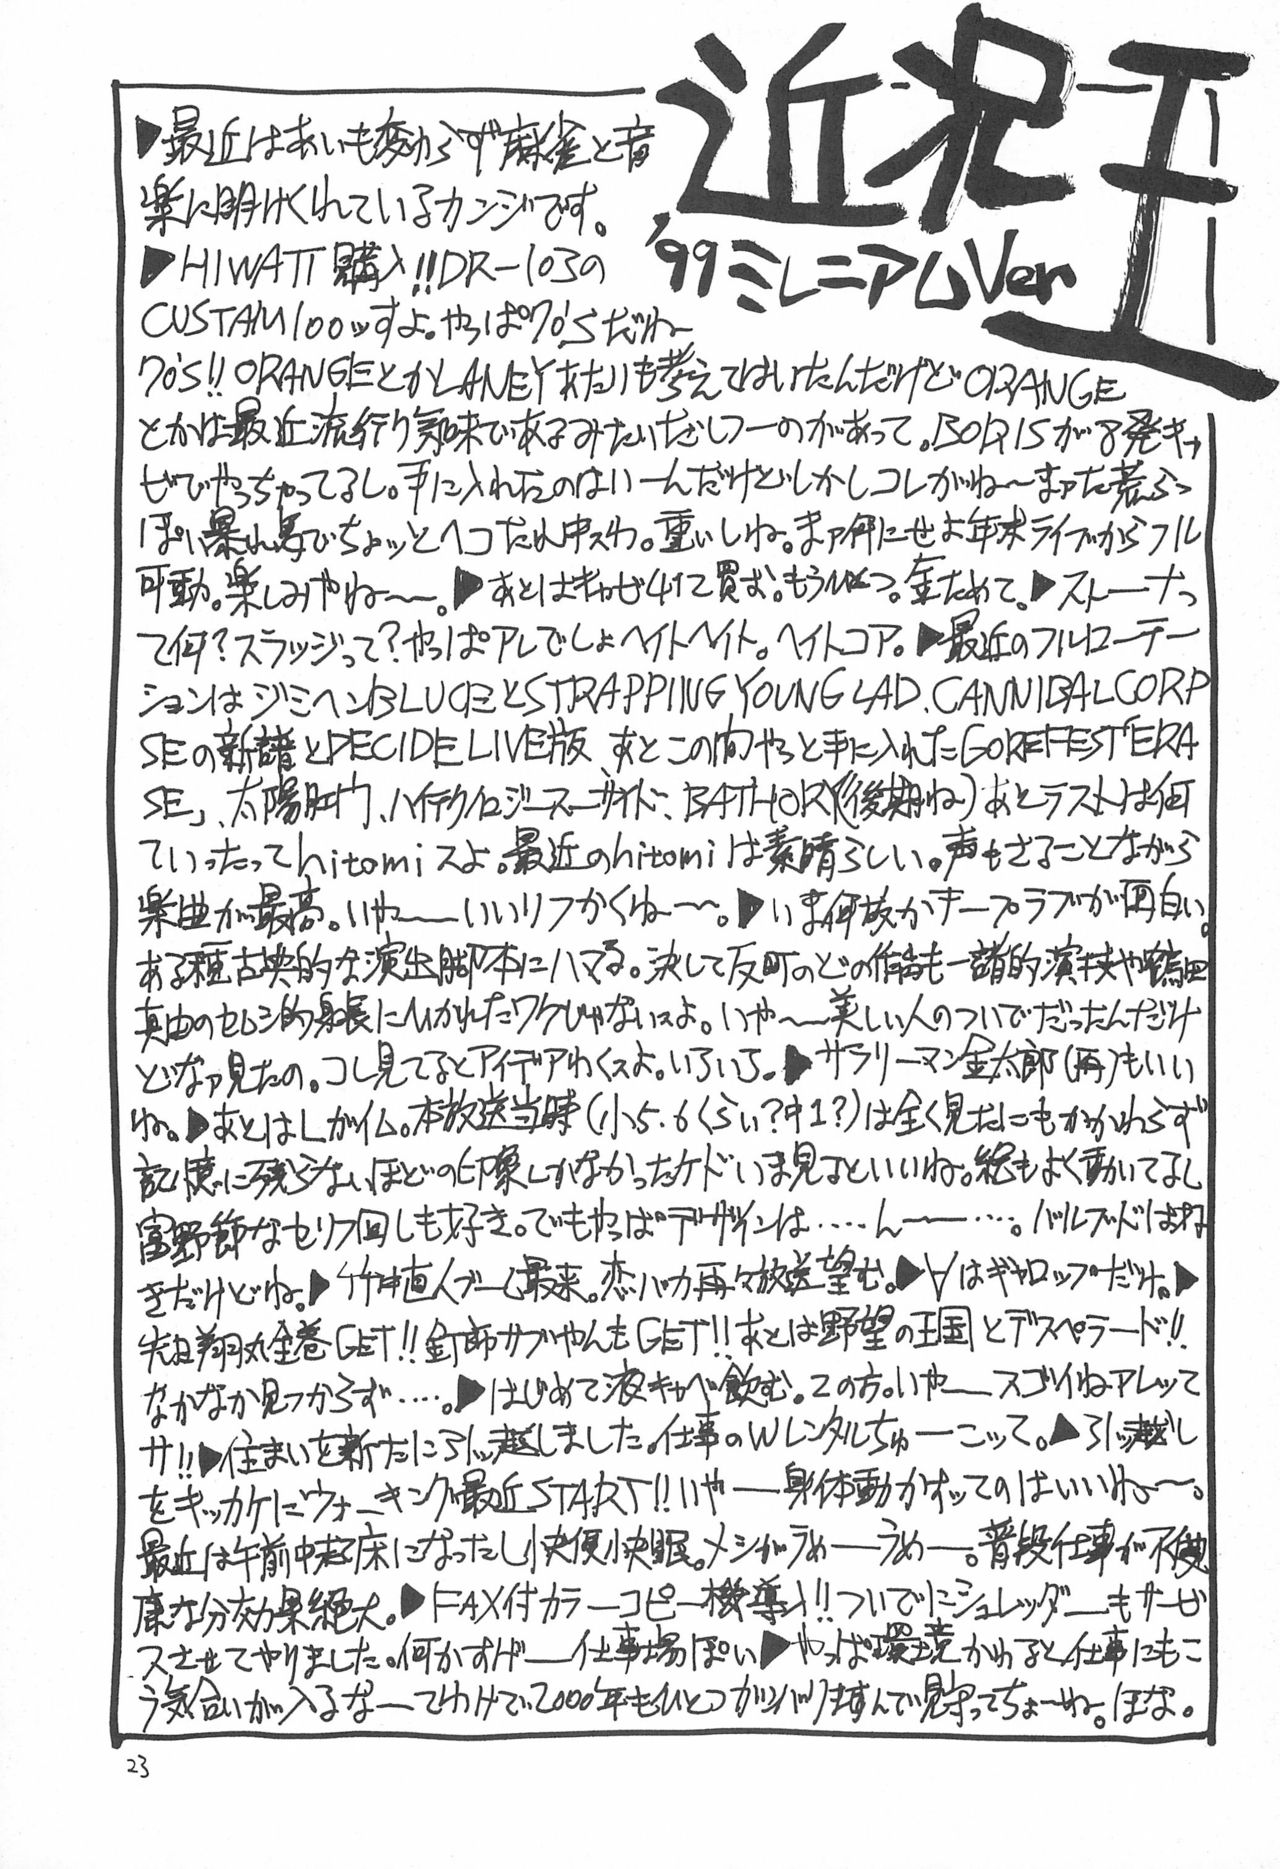 近況王
'99ミレニアムVer
▶最近はあいも変わらず麻雀と音
楽に明けくれているカンジです。
▶HIWATT購入!!DR-103の
CUSTAM100ッすよ。やっぱ70'Sだね〜
70'S!!ORANGEとかLANEYあたりも考えてはいたんだけどORANGE
とかは最近流行り気味であるみたいだしフーのがあって。BORISが8発キャ
ビでやっちゃってるし。手に入れたのはいーんだけどしかしコレがね〜まァた荒らっ
ぽい暴れ馬でちょッとヘコたれ中スわ。重いしね。まァ何にせよ年末ライブからフル
可動。楽しみやね〜〜。▶あとはキャビ4ケて買む。もうひとつ。金ためて。▶ストーナっ
て何?スラッジって?やっぱアレでしょヘイトヘイト。ヘイトコア。▶最近のフルローテー
ションはジミヘンBLUCEとSTRAPPING YOUNG LAD、CANNIBALCORP
SEの新譜とDECIDE LIVE版 あとこの間やっと手に入れたGOREFEST「ERA
SE」、太陽肛門、ハイテクノロジースーサイド、BATHORY(後期ね)あとラストは何
ていったってhitomiスよ。最近のhitomiは素晴らしい。声もさることながら
楽曲が最高。いや〜〜いいリフかくね〜〜。▶いま何故かオープラブが面白い。
ある種古典的な演出脚本にハマる。決して反町のどの作品も一諸的演技や鶴田
真由のセムシ的身長にひかれたワケじゃないスよ。いや〜〜美しい人のついでだったんだけ
どなァ見たの。コレ見てるとアイデアわくスよ。いろいろ。▶サラリーマン金太郎(再)もいい
ね。▶あとはLガイム。本放送当時(小5.6くらい?中1?)は全く見たにもかかわらず
記憶に残らないほどの印象しかなかったケドいま見るといいね。絵もよく動いてるし
富野節なセリフ回しも好き。でもやっぱデザインは‥‥ん〜〜‥‥。バルブドはね
きだけどね。▶竹中直人ブーム最来。恋バカ再々放送望む。▶∀はギャロップだね。▶
先日翔丸全巻GET!!釘師サブやんもGET!!あとは野望の王国とデスペラード!!
なかなか見つからず‥‥。▶はじめて液キャベ飲む。2の方。いや〜スゴイねアレッて
サ!!▶住まいを新たに引ッ越しました。仕事のWレンタルちゅーこって。▶引ッ越し
をキッカケにウォーキング最近START!!いや〜身体動かすッてのはいいね〜〜。
最近は午前中起床になったし快便快眠。メシがうめーうめー。普段仕事が不健
康な分効果絶大。▶FAX付カラーコピー機導入!!ついでにシュレッダーもサービ
スさせてやりました。何かすげー仕事場ぽい▶やっぱ環境かわると仕事にもこ
う気合いが入るなーてわけで2000年もひとつガンバりますんで見守ってちょーね。ほな。
23